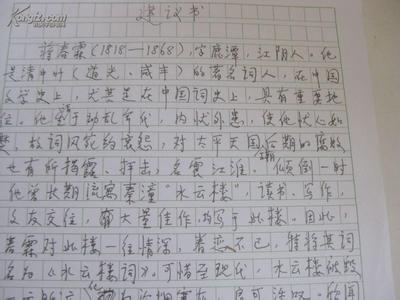 kongfz.com
建议书
蒋春霖(1818—1868),字鹿潭,江阴人。他
是清中叶(道光、咸丰)的著名词人,在中国
文学史上,尤其是在中国词史上,具有重要地
位。他游于动乱年代,内忧外患,使他忧心如
焚,故词风宛約哀怨,对太平天国后期的腐败
也有所揭露、抨击,名震江淮,倾倒一时
他曾长期流寓秦潼“水云楼”,读书、写作,
交友交往,大量佳作,均写于此楼。因此,
春霖对此楼一往情深,眷恋不已,特将其词
名为《水云楼词》,可惜至现代,水云楼破毁